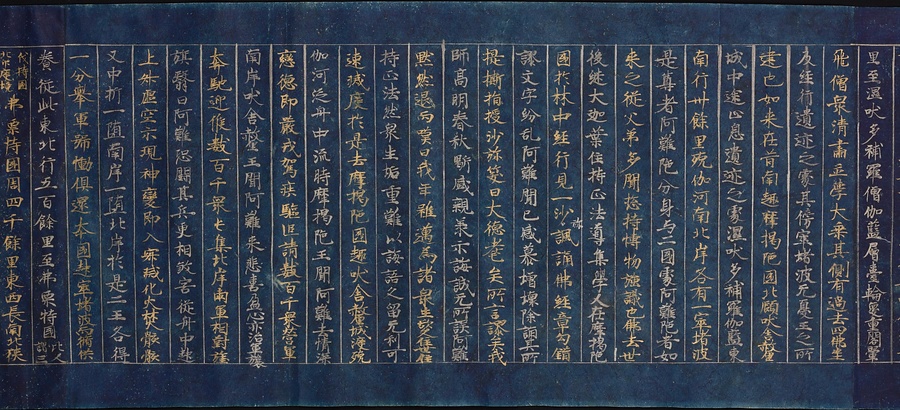 里至濕吠多補羅僧伽藍層臺輪奐重閣翬
飛僧眾清肅並學大乘其側有過去四佛坐
及經行遺迹之處其傍窣堵波無憂王之所
建也如來在昔南趣摩揭陀國北顧吠舍釐
城中途止息遺迹之處濕吠多補羅伽藍東
南行卅餘里殑伽河南北岸各有一窣堵波
是尊者阿難陀分身与二國處阿難陀者如
來之從父弟多聞揔持博物強識也佛去世
後繼大迦葉住持正法導集學人在摩揭陀
國於林中經行見一沙彌諷誦佛經章句錯
謬文字紛乱阿難聞已感慕增懷陰詣其所
提撕指授沙弥笑曰大德耄矣所言謬矣我
師高明春秋斯盛親承示誨誠无所誤阿難
默然退勾歎曰我年雖邁為諸眾生欲住住
持正法然眾生垢重難以誨語久留无利可
速滅度於是去摩揭陀國趣吠舍釐城渡殑
伽河泛舟中流時摩揭陀王聞阿難去情深
戀德即嚴戎駕疾驅追請數百千眾營軍
南岸吠舍釐王聞阿難來悲喜盈心亦治軍
奔馳迎候數百千眾屯集北岸兩軍相對旌
旗翳日阿難恐鬪其兵更相敦害從舟中起
上昇虛空示現神變即入寂滅化火焚骸骸
又中折一墮南岸一墮北岸於是二王各得
一分舉軍號慟俱還本國起窣堵波脩供
養從此東北行五百餘里至弗栗特國
弗栗特國周四千餘里東西長南北狹